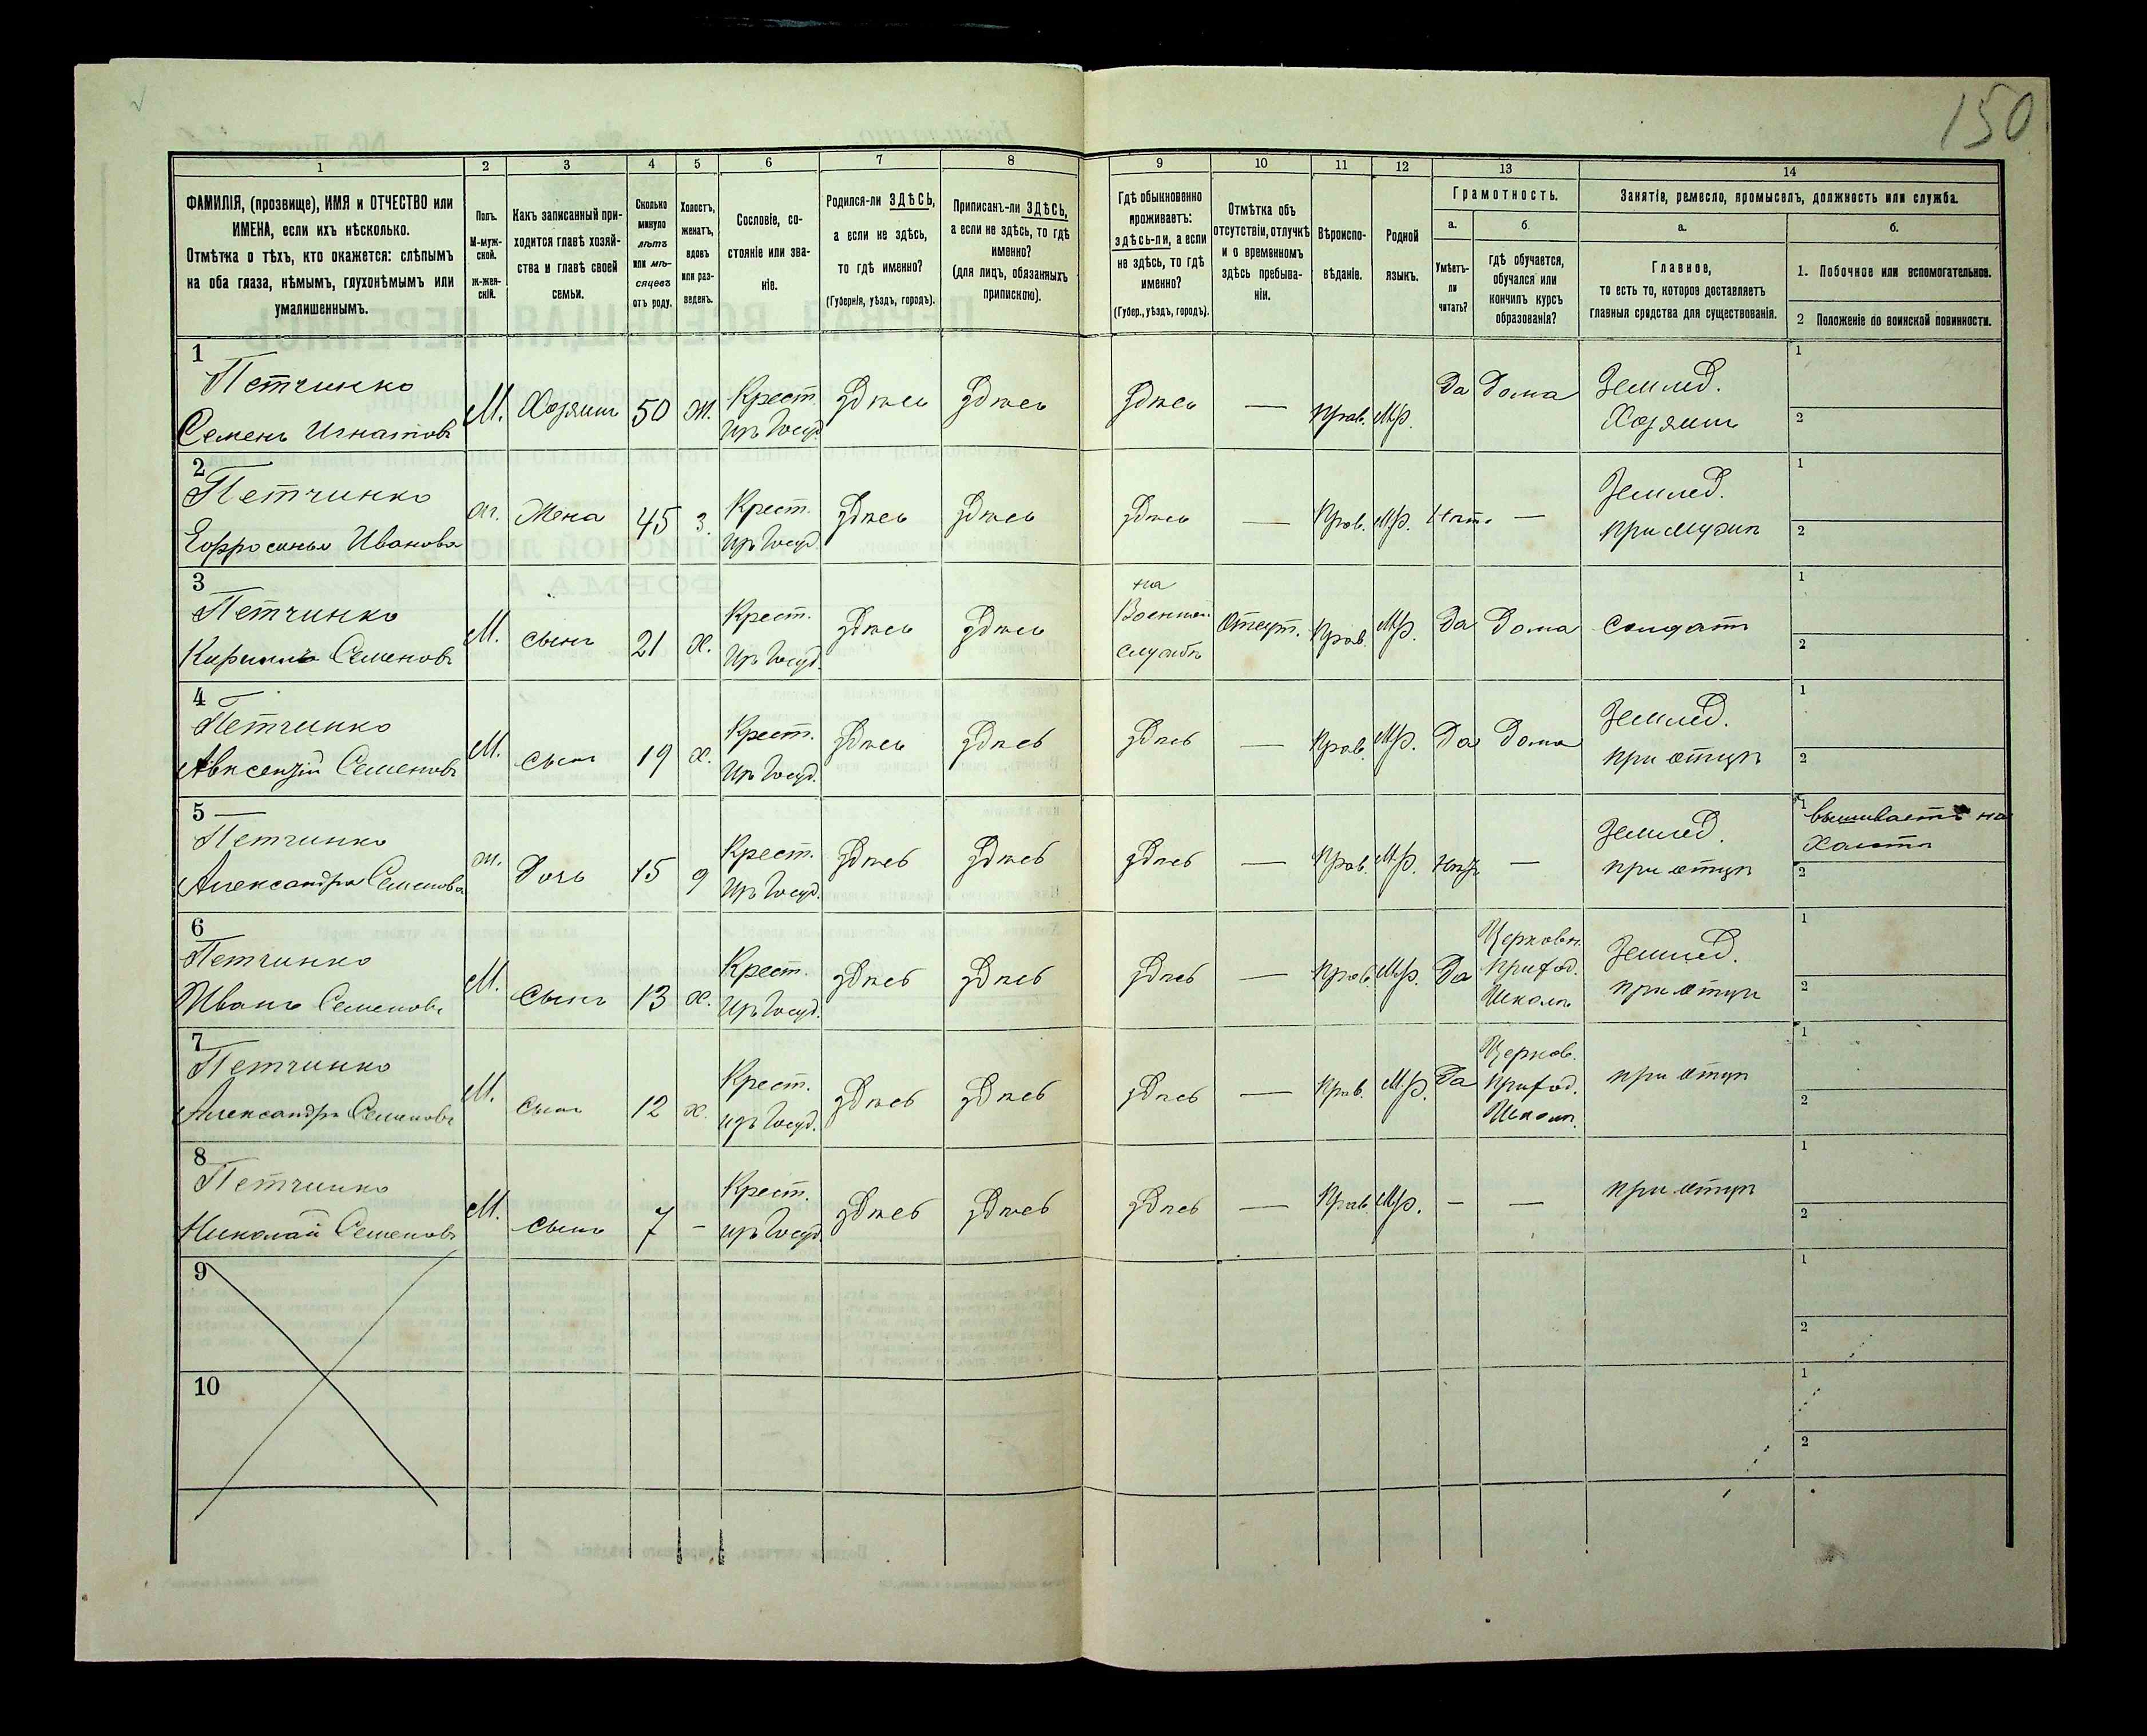 150
1
2
3
4
5
6
7
8
9
10
11
12
13
14
ФАМИЛІЯ, (прозвище), ИМЯ и ОТЧЕСТВО или
ИМЕНА, если ихъ нѣсколько.
Отмѣтка о тѣхъ, кто окажется: слѣпымъ
на оба глаза, нѣмымъ, глухонѣмымъ или
умалишеннымъ.
Полъ.
М-муж-
ской.
ж-жен-
скій.
Какъ записанный при-
ходится главѣ хозяй-
ства и главѣ своей
семьи.
Сколько
минуло
лѣтъ
или мѣ-
сяцевъ
отъ роду.
Холостъ,
женатъ,
вдовъ
или раз-
веденъ.
Сословіе, со-
стояніе или зва-
ніе.
Родился-ли ЗДѢСЬ,
а если не здѣсь,
то гдѣ именно?
(Губернія, уѣздъ, городъ).
Приписанъ-ли ЗДѢСЬ,
а если не здѣсь, то гдѣ
именно?
(для лицъ, обязанныхъ
припискою).
Гдѣ обыкновенно
проживаетъ:
здѣсь-ли, а если
не здѣсь, то гдѣ
именно?
(Губер., уѣздъ, городъ).
Отмѣтка объ
отсутствіи, отлучкѣ
и о временномъ
здѣсь пребыва-
ніи.
Вѣроиспо-
вѣданіе.
Родной
языкъ.
Грамотность.
а.
Умѣетъ-
ли
читать?
б.
гдѣ обучается,
обучался или
кончилъ курсъ
образованія?
Занятія, ремесло, промыселъ, должность или служба.
а.
Главное,
то есть то, которое доставляетъ
главныя средства для существованія.
б.
1. Побочное или вспомогательное.
2 Положеніе по воинской повинности.
1
Петчинко
Семенъ Игнатовъ
М. Хозяинъ 50 Ж. Крест.
изъ Госуд. здѣсь здѣсь здѣсь — Прав. М.р. Да Дома Землед.
Хозяинъ
1
2
2
Петчинко
Ефросинья Иванова
ж. Жена 45 з. Крест.
изъ Госуд. здѣсь здѣсь здѣсь — Прав. М.р. Нѣтъ —
Землед.
при мужѣ
1
2
3
Петчинко
Кириллъ Семеновъ
М. сынъ 21 Х. Крест.
изъ Госуд. здѣсь здѣсь на
Военной
службѣ
Отсут. Прав. М.р. Да Дома солдатъ
1
2
4
Петчинко
Авксентій Семеновъ
М. сынъ 19 х. Крест.
изъ Госуд. здѣсь здѣсь здѣсь — Прав. М.р. Да Дома
Землед.
при отцѣ
1
2
5 —
Петчинко
Александра Семенова
ж. Дочь 15 д Крест.
изъ Госуд. здѣсь здѣсь здѣсь — Прав. М.р. нѣтъ —
Землед.
при отцѣ
1 вышиваетъ на
2
6
Петчинко
Иванъ Семеновъ
М. Сынъ 13 х. Крест.
изъ Госуд. здѣсь здѣсь здѣсь — Прав. М.р. Да Церковн.
приход.
Школѣ
Землед.
при отцѣ
1
2
7
Петчинко
Александръ Семеновъ
М. Сынъ 12 х. Крест.
изъ Госуд. здѣсь здѣсь здѣсь — Прав. М.р. Да Церков.
приход.
Школѣ.
при отцѣ
1
2
8
Петчинко
Николай Семеновъ
М. Сынъ 7 — Крест.
изъ Госуд. здѣсь здѣсь здѣсь — Прав. М.р. — —
при отцѣ
1
2
9
1
2
10
1
2